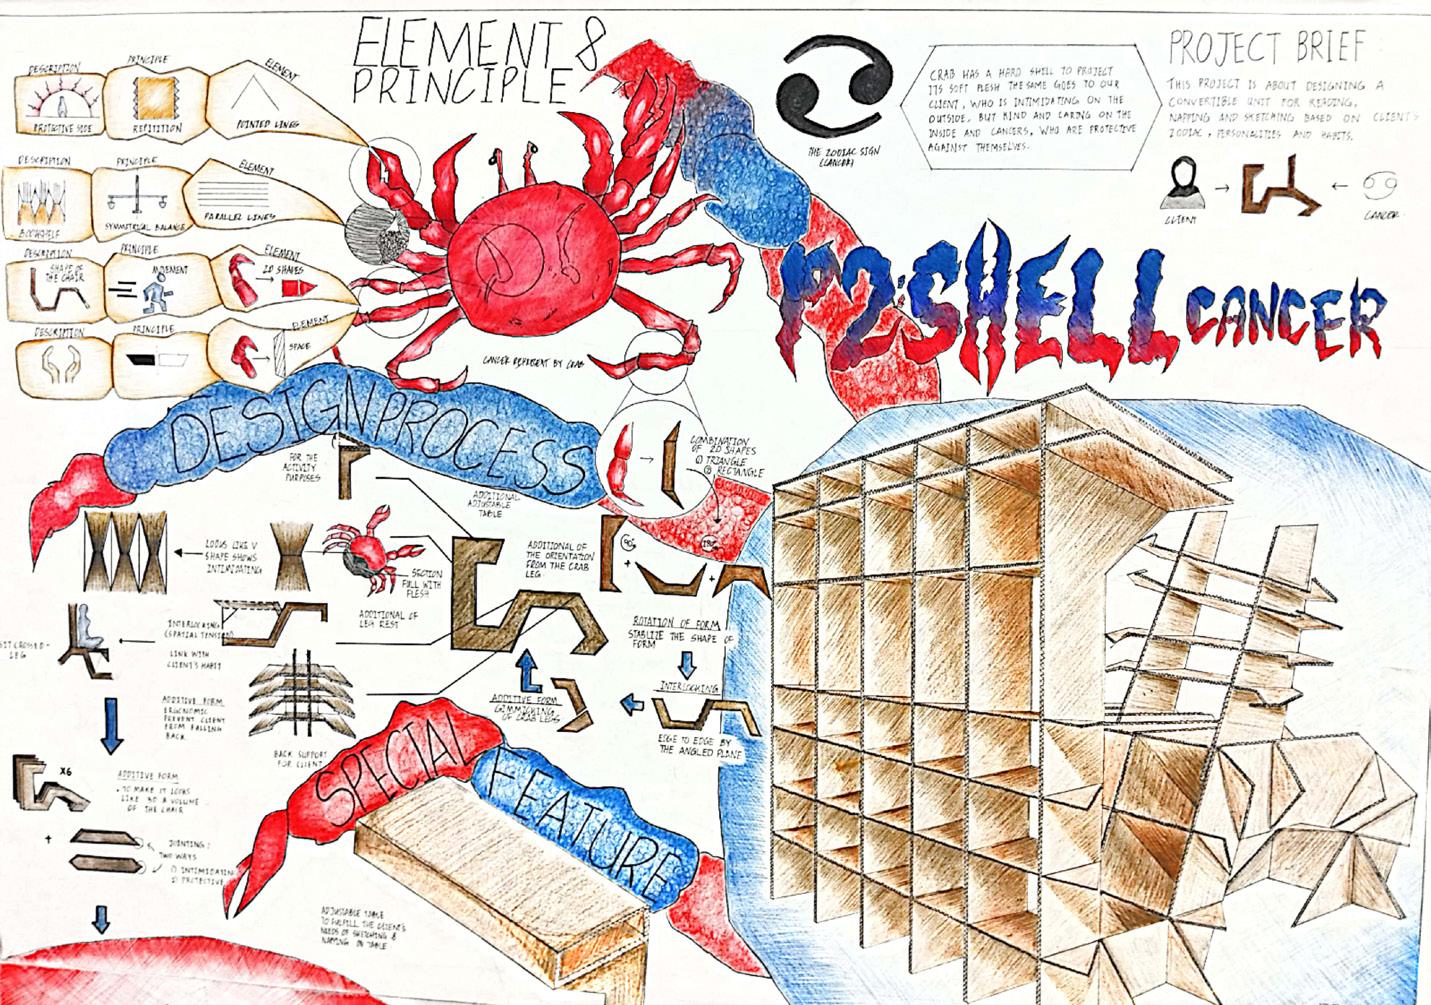 ELEMENT &
PRINCIPLE
DESCRIPTION
PROTECTIVE SIDE
PRINCIPLE
REPITITION
ELEMENT
POINTED LINES
DESCRIPTION
BOOKSHELF
PRINCIPLE
SYMMETRICAL BALANCE
ELEMENT
PARALLEL LINES
DESCRIPTION
SHAPE OF
THE CHAIR
PRINCIPLE
MOVEMENT
ELEMENT
2D SHAPES
DESCRIPTION
PRINCIPLE
ELEMENT
SPACE
CANCER REPRESENT BY CRAB
THE ZODIAC SIGN
(CANCER)
CRAB HAS A HARD SHELL TO PROJECT
ITS SOFT FLESH THE SAME GOES TO OUR
CLIENT, WHO IS INTIMIDATING ON THE
OUTSIDE, BUT KIND AND CARING ON THE
INSIDE AND CANCERS, WHO ARE PROTECTIVE
AGAINST THEMSELVES.
PROJECT BRIEF
THIS PROJECT IS ABOUT DESIGNING A
CONVERTIBLE UNIT FOR READING,
NAPPING AND SKETCHING BASED ON CLIENT'S
ZODIAC, PERSONALITIES AND HABITS.
CLIENT
CANCER
P2:SHELL CANCER
DESIGN PROCESS
COMBINATION
OF 2D SHAPES
① TRIANGLE
② RECTANGLE
FOR THE
ACTIVITY
PURPOSES
ADDITIONAL
ADJUSTABLE
TABLE
LOOKS LIKE V
SHAPE SHOWS
INTIMIDATING
SECTION
FULL WITH
FLESH
ADDITIONAL OF
THE ORIENTATION
FROM THE CRAB
LEG
90°
180°
ROTATION OF FORM
STABLIZE THE SHAPE OF
FORM
INTERLOCKING
EDGE TO EDGE BY
THE ANGLED PLANE
ADDITIVE FORM
GIMMICKING
OF CRAB LEGS
ADDITIONAL OF
LEG REST
INTERLOCKING
(SPATIAL TENSION)
LINK WITH
CLIENT'S HABIT
SIT CROSSED-
LEG
BACK SUPPORT
FOR CLIENT
ADDITIVE FORM
ERGONOMIC
PREVENT CLIENT
FROM FALLING
BACK
X6
ADDITIVE FORM
TO MAKE IT LOOKS
LIKE 3D & VOLUME
OF THE CHAIR
JOINTING:
TWO WAYS
① INTIMIDATING
② PROTECTIVE
SPECIAL FEATURE
ADJUSTABLE TABLE
TO FULFILL THE CLIENT'S
NEEDS OF SKETCHING &
NAPPING ON TABLE